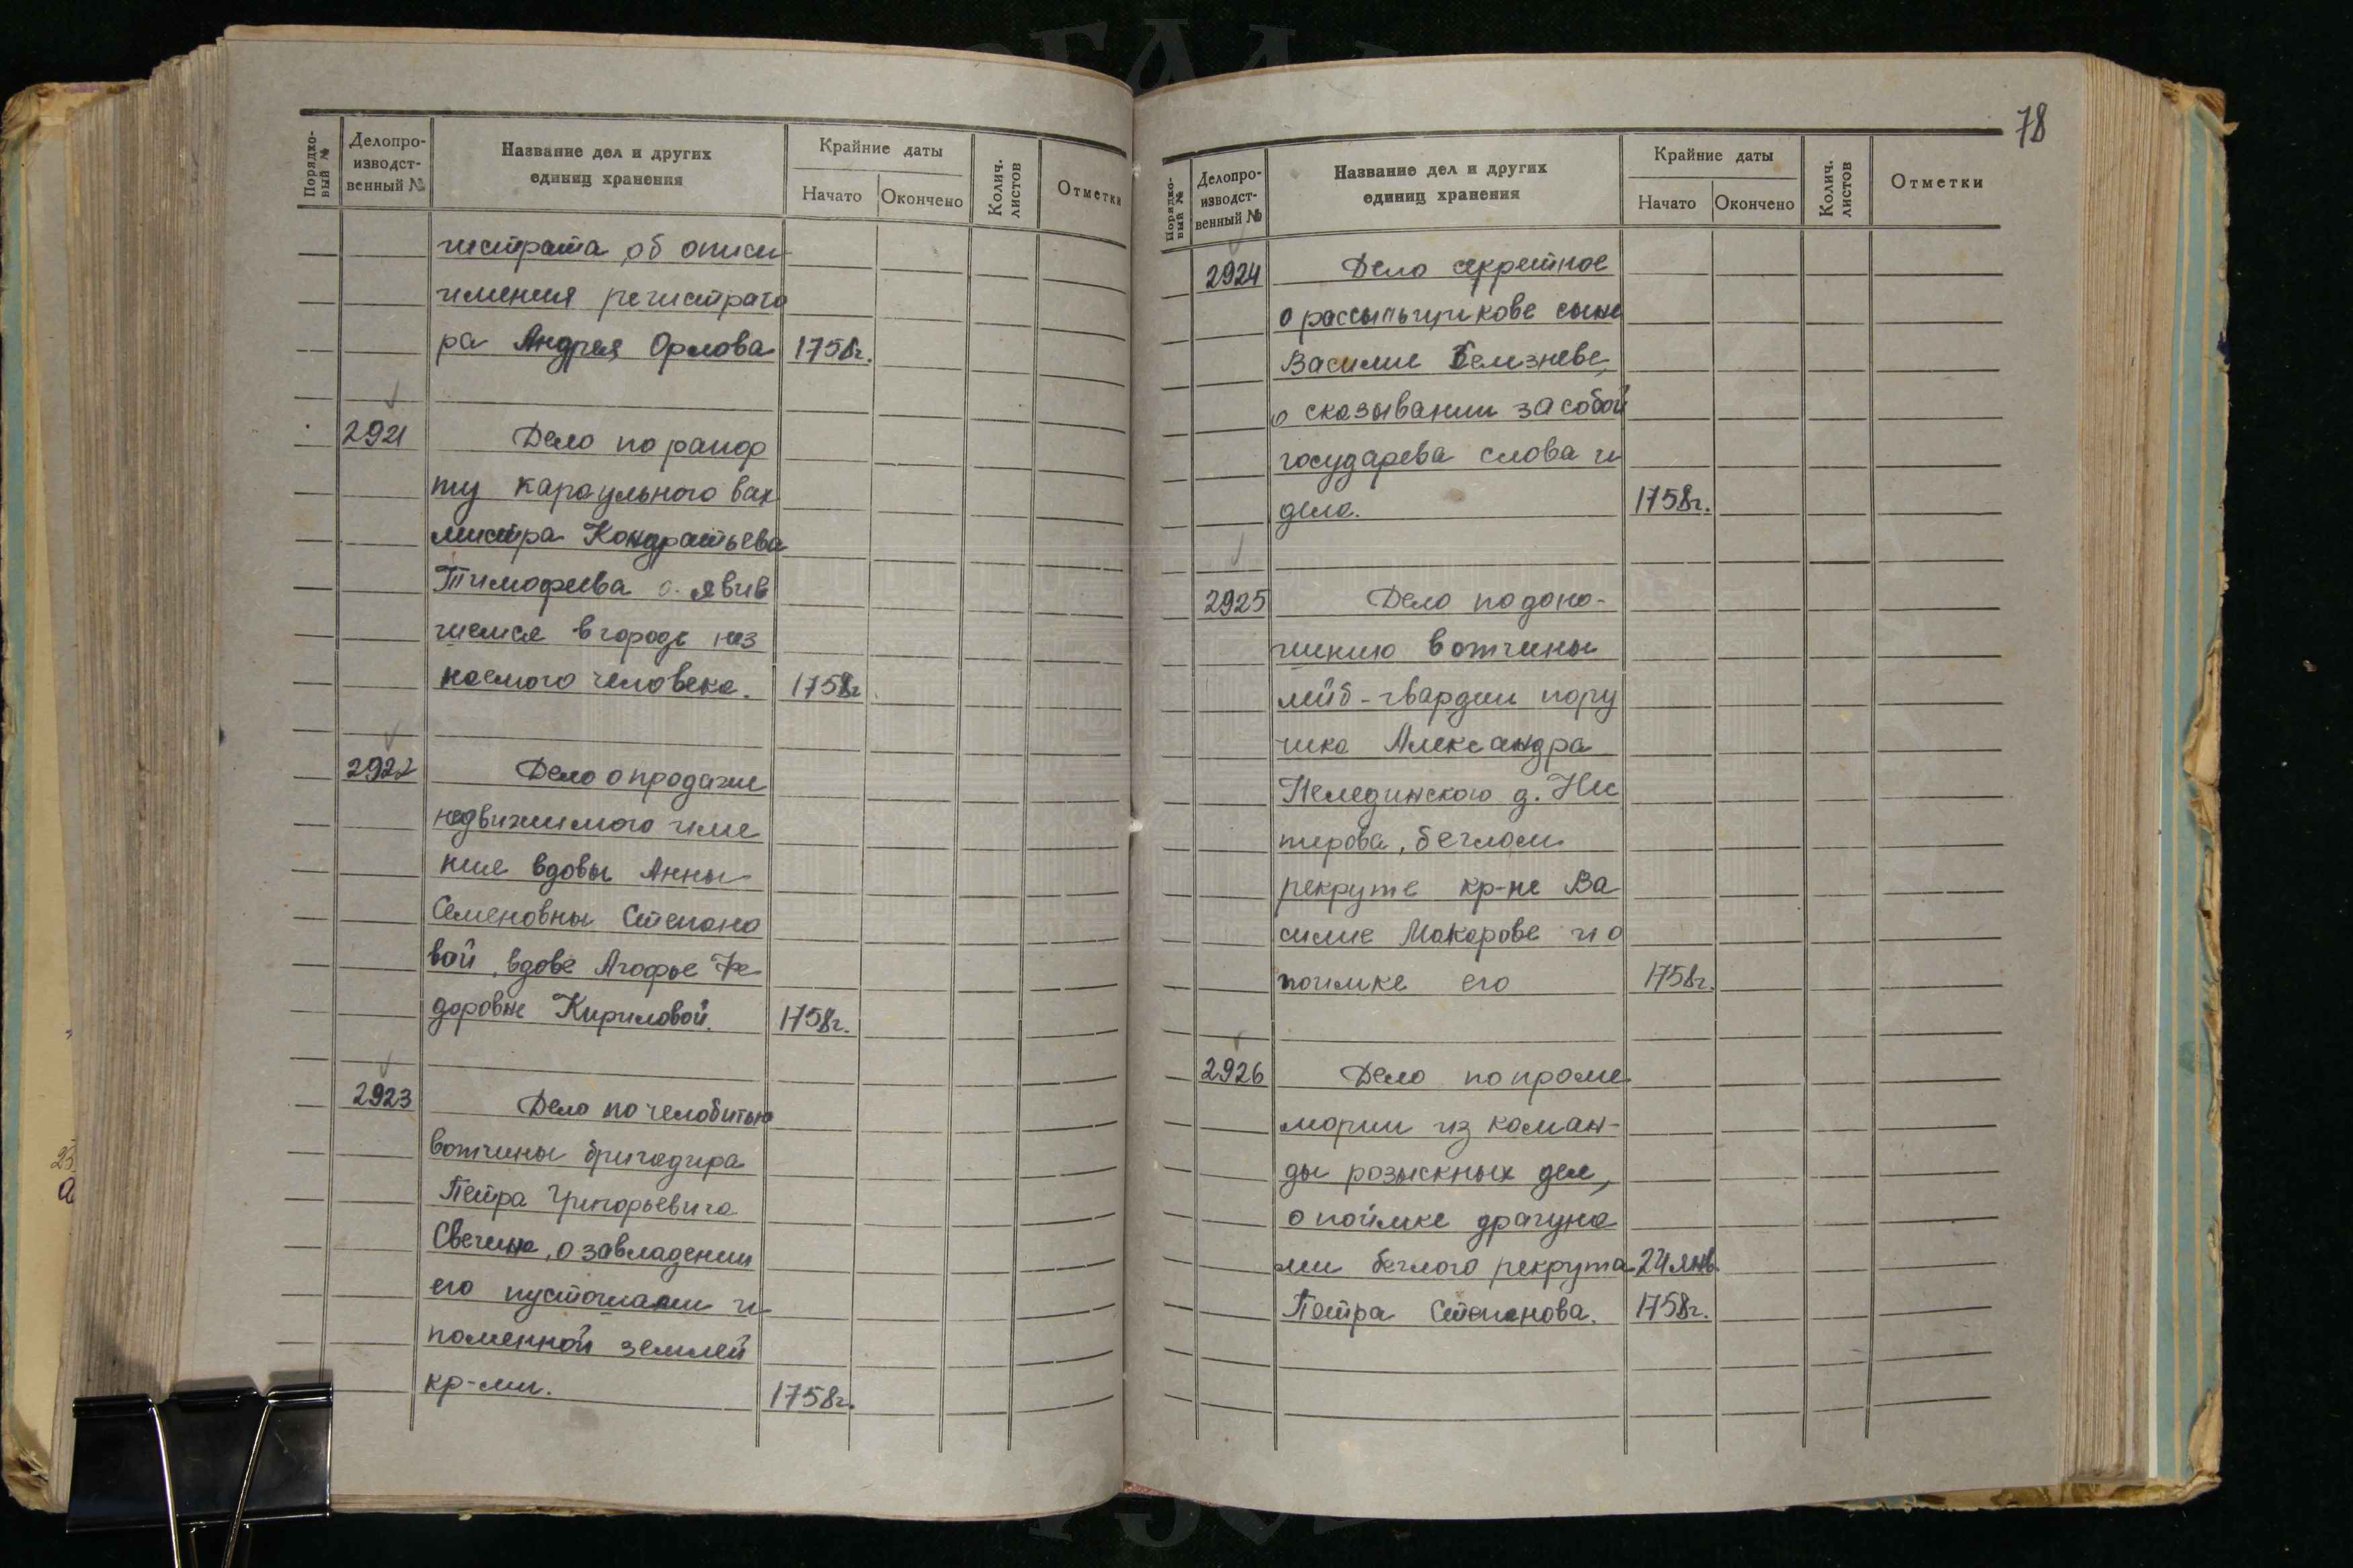 Порядко-
вый №
Делопро-
изводст-
венный №
Название дел и других
единиц хранения
Крайние даты
Начато
Окончено
Колич.
листов
Отметки
гистрата об описи
имения регистрато
ра Андрея Орлова 1758г.
2921 Дело по рапор
ту караульного вах
мистра Кондратьева
Тимофеева о явив
шемся в городе нез
наемого человека. 1758г.
2922 Дело о продаже
недвижимого име
ние вдовы Анны
Семеновны Степано
вой, вдове Агофье Фе
доровне Кириловой. 1758г.
2923 Дело по челобитью
вотчины бригадира
Петра Григорьевича
Свечина, о завладении
его пустошами и
поменной землей
кр-ми. 1758г.
78
Порядко-
вый №
Делопро-
изводст-
венный №
Название дел и других
единиц хранения
Крайние даты
Начато
Окончено
Колич.
листов
Отметки
2924 Дело секретное
о рассыльщикове сыне
Василие
о сказывании за собой
государева слова и
дела. 1758г.
2925 Дело по доно-
шению вотчины
лейб-гвардии пору
чика Александра
Нелединского д. Нес
терова, беглом
рекруте кр-не Ва
силие Макарове и о
поимке его 1758г.
2926 Дело по проме
мории из коман-
ды розыскных дел,
о поимке драгуна
ми беглого рекрута 24 янв.
Петра Степанова. 1758г.